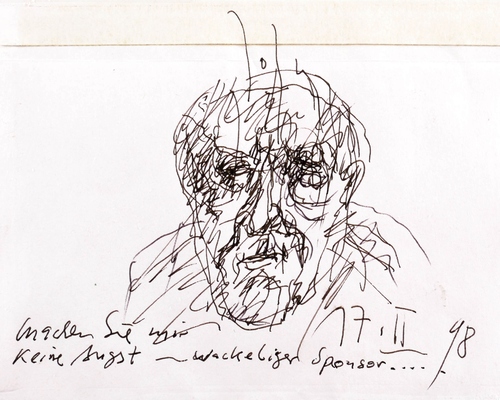 Machen Sie mir 17. II 98
Keine Angst – wackeliger Sponsor....